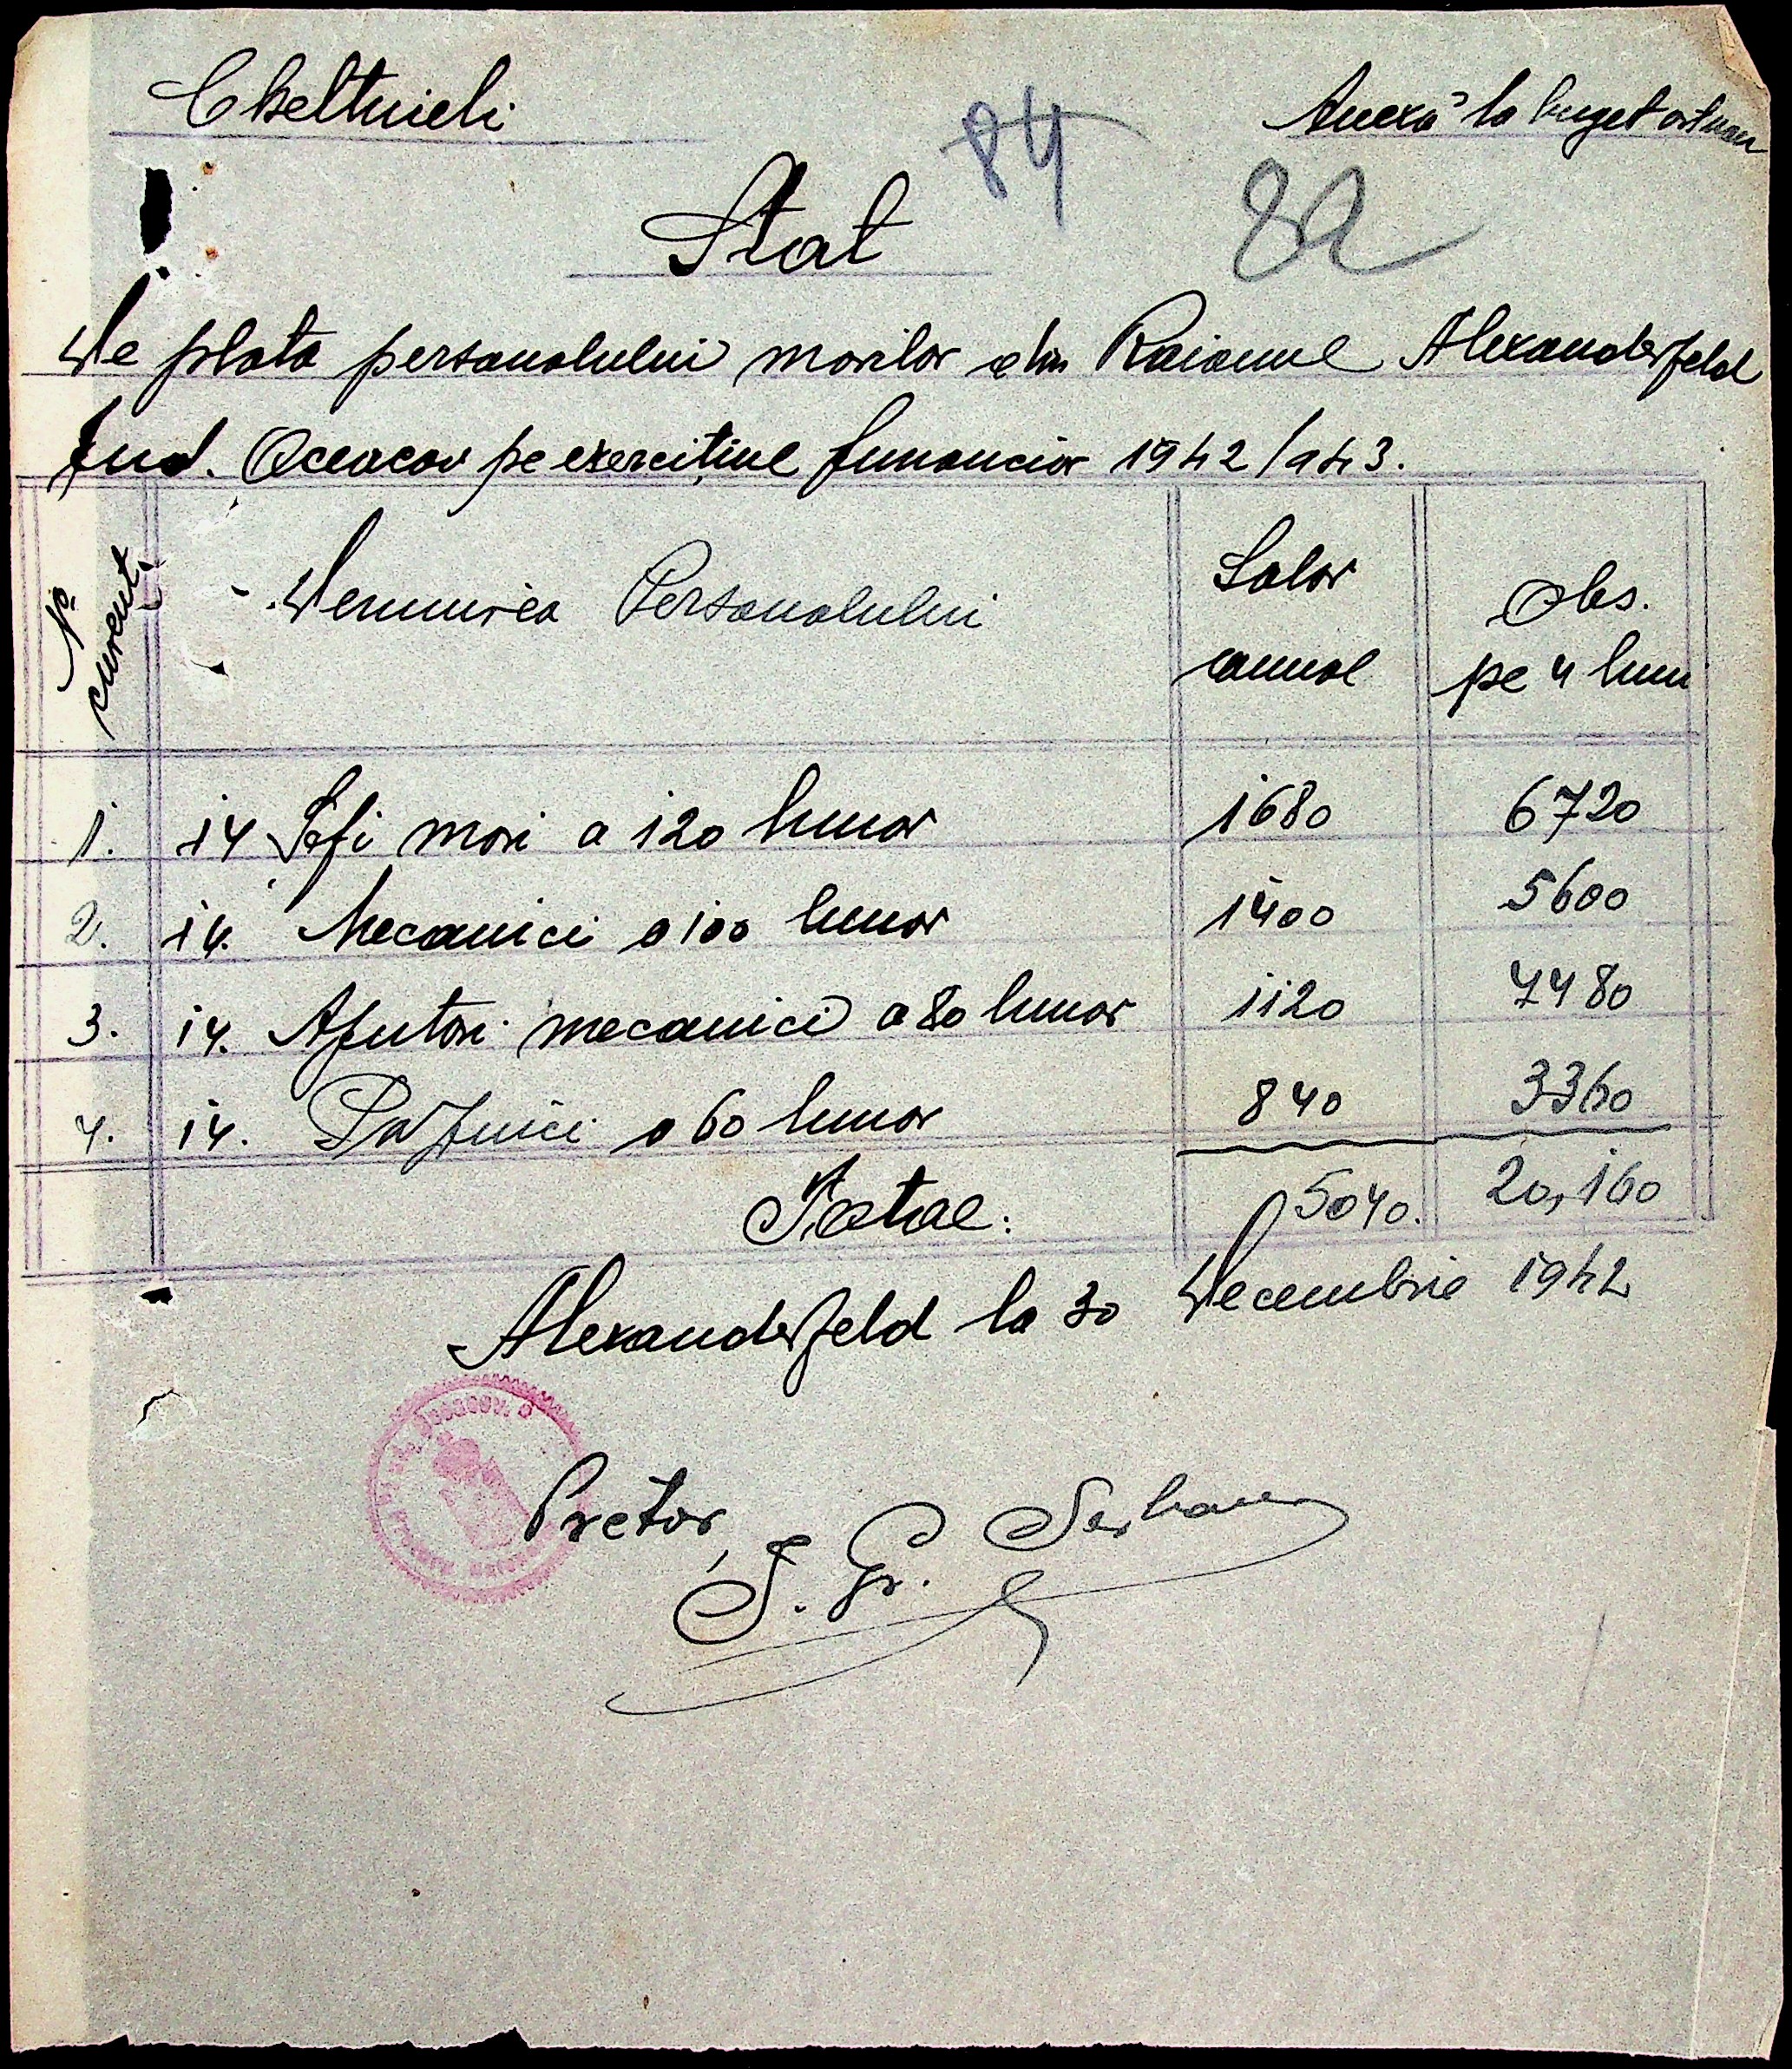 Cheltuieli
Anexă la buget ordinar
84
82
Stat
De plata personalului morilor din Raionul Alexanderfeld
Jud. Oceacov pe exercițiul finanaciar 1942/943.
No curent.
Denumirea Personalului
Salar anual
Obs. pe 4 luni
1. 14 Sefi mori a 120 lunar 1680 6720
2. 14. Mecanici a 100 lunar 1400 5600
3. 14. Ajutori mecanici a 80 lunar 1120 4480
4. 14. Paznici a 60 lunar 840 3360
Total: 5040. 20,160
Alexanderfeld la 30 Decembrie 1942
Pretor,
I. Gr. Serban